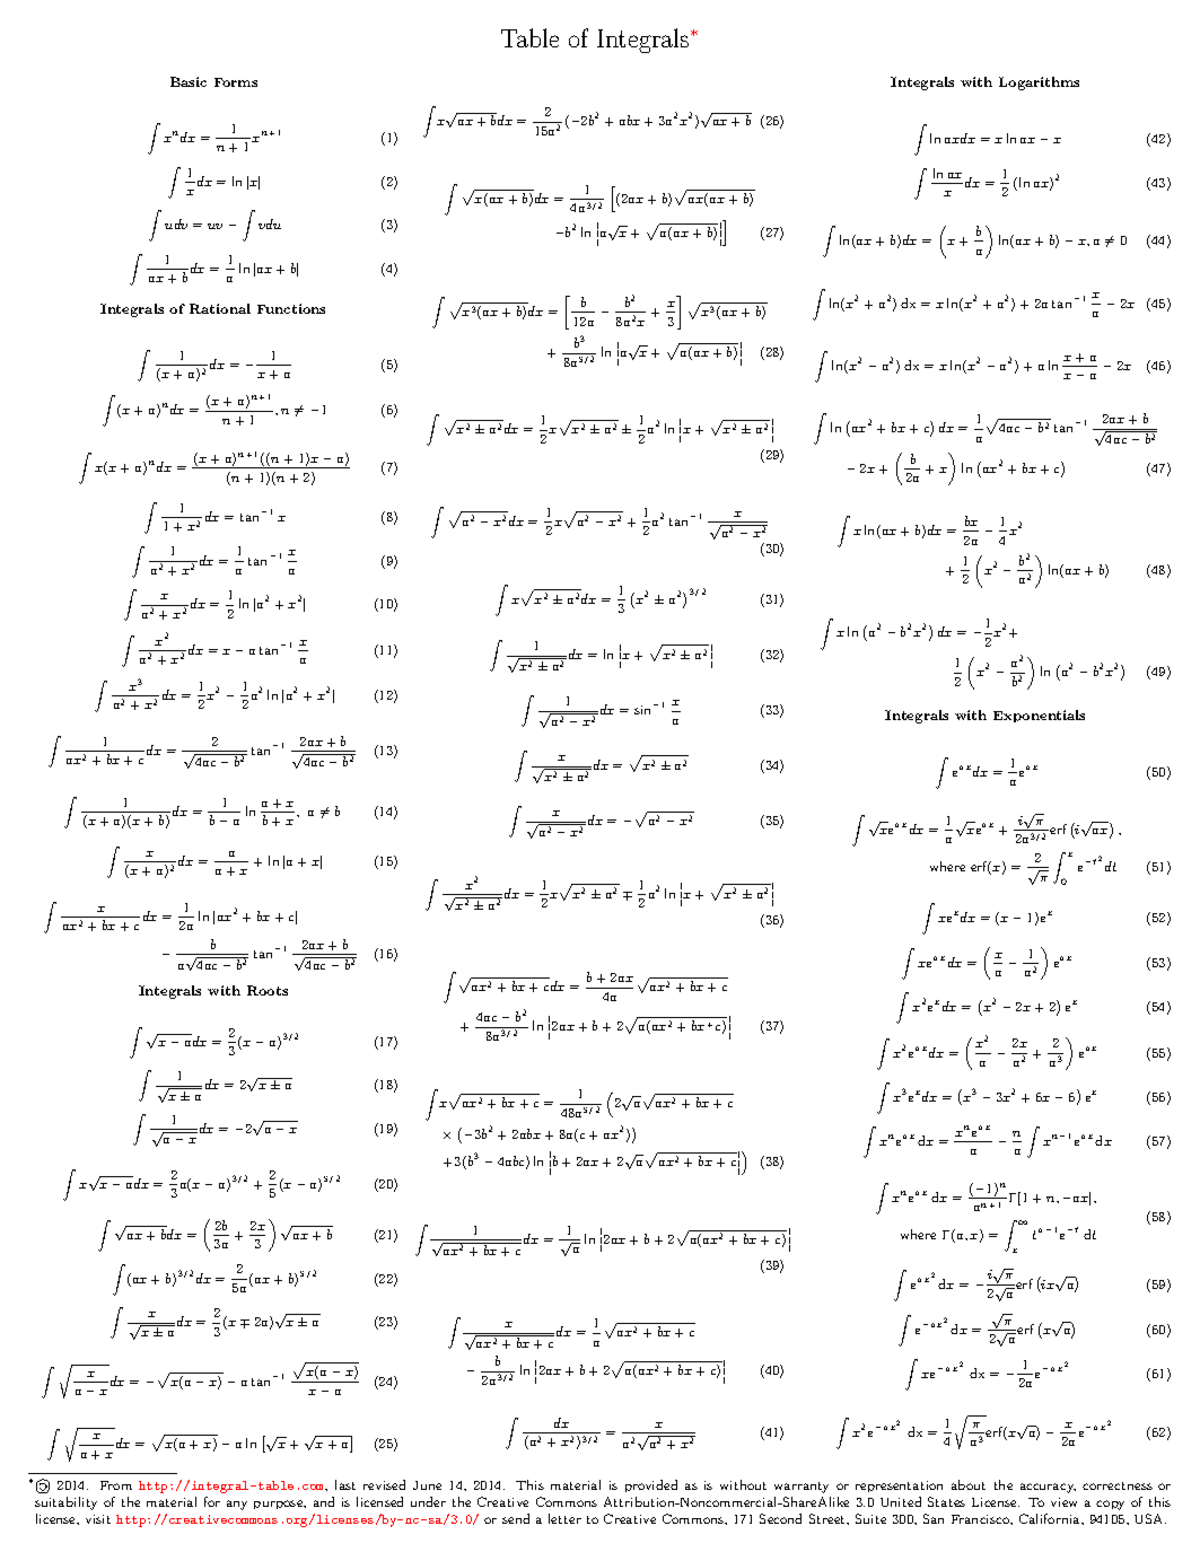 Table of Integrals*
Basic Forms
∫ xⁿdx = 1/(n + 1) xⁿ⁺¹ (1)
∫ 1/x dx = ln |x| (2)
∫ udv = uv − ∫ vdu (3)
∫ 1/(ax + b) dx = 1/a ln |ax + b| (4)
Integrals of Rational Functions
∫ 1/(x + a)² dx = − 1/(x + a) (5)
∫ (x + a)ⁿdx = (x + a)ⁿ⁺¹/(n + 1), n ≠ −1 (6)
∫ x(x + a)ⁿdx = (x + a)ⁿ⁺¹((n + 1)x − a)/((n + 1)(n + 2)) (7)
∫ 1/(1 + x²) dx = tan⁻¹ x (8)
∫ 1/(a² + x²) dx = 1/a tan⁻¹ x/a (9)
∫ x/(a² + x²) dx = 1/2 ln |a² + x²| (10)
∫ x²/(a² + x²) dx = x − a tan⁻¹ x/a (11)
∫ x³/(a² + x²) dx = 1/2 x² − 1/2 a² ln |a² + x²| (12)
∫ 1/(ax² + bx + c) dx = 2/√(4ac − b²) tan⁻¹ (2ax + b)/√(4ac − b²) (13)
∫ 1/((x + a)(x + b)) dx = 1/(b − a) ln (a + x)/(b + x), a ≠ b (14)
∫ x/(x + a)² dx = a/(a + x) + ln |a + x| (15)
∫ x/(ax² + bx + c) dx = 1/(2a) ln |ax² + bx + c|
− b/(a√(4ac − b²)) tan⁻¹ (2ax + b)/√(4ac − b²) (16)
Integrals with Roots
∫ √(x − a) dx = 2/3 (x − a)^(3/2) (17)
∫ 1/√(x ± a) dx = 2√(x ± a) (18)
∫ 1/√(a − x) dx = −2√(a − x) (19)
∫ x√(x − a) dx = 2/3 a(x − a)^(3/2) + 2/5 (x − a)^(5/2) (20)
∫ √(ax + b) dx = (2b/(3a) + 2x/3) √(ax + b) (21)
∫ (ax + b)^(3/2) dx = 2/(5a) (ax + b)^(5/2) (22)
∫ x/√(x ± a) dx = 2/3 (x ∓ 2a)√(x ± a) (23)
∫ √(x/(a − x)) dx = −√(x(a − x)) − a tan⁻¹ √(x(a − x))/(x − a) (24)
∫ √(x/(a + x)) dx = √(x(a + x)) − a ln [√x + √(x + a)] (25)
∫ x√(ax + b) dx = 2/(15a²) (−2b² + abx + 3a²x²)√(ax + b) (26)
∫ √(x(ax + b)) dx = 1/(4a^(3/2)) [(2ax + b)√(ax(ax + b))
−b² ln |a√x + √(a(ax + b))|] (27)
∫ √(x³(ax + b)) dx = [b/(12a) − b²/(8a²x) + x/3] √(x³(ax + b))
+ b³/(8a^(5/2)) ln |a√x + √(a(ax + b))| (28)
∫ √(x² ± a²) dx = 1/2 x√(x² ± a²) ± 1/2 a² ln |x + √(x² ± a²)|
(29)
∫ √(a² − x²) dx = 1/2 x√(a² − x²) + 1/2 a² tan⁻¹ x/√(a² − x²)
(30)
∫ x√(x² ± a²) dx = 1/3 (x² ± a²)^(3/2) (31)
∫ 1/√(x² ± a²) dx = ln |x + √(x² ± a²)| (32)
∫ 1/√(a² − x²) dx = sin⁻¹ x/a (33)
∫ x/√(x² ± a²) dx = √(x² ± a²) (34)
∫ x/√(a² − x²) dx = −√(a² − x²) (35)
∫ x²/√(x² ± a²) dx = 1/2 x√(x² ± a²) ∓ 1/2 a² ln |x + √(x² ± a²)|
(36)
∫ √(ax² + bx + c) dx = (b + 2ax)/(4a) √(ax² + bx + c)
+ (4ac − b²)/(8a^(3/2)) ln |2ax + b + 2√(a(ax² + bx⁺c))| (37)
∫ x√(ax² + bx + c) = 1/(48a^(5/2)) (2√a √(ax² + bx + c)
× (−3b² + 2abx + 8a(c + ax²))
+3(b³ − 4abc) ln |b + 2ax + 2√a √(ax² + bx + c)|) (38)
∫ 1/√(ax² + bx + c) dx = 1/√a ln |2ax + b + 2√(a(ax² + bx + c))|
(39)
∫ x/√(ax² + bx + c) dx = 1/a √(ax² + bx + c)
− b/(2a^(3/2)) ln |2ax + b + 2√(a(ax² + bx + c))| (40)
∫ dx/(a² + x²)^(3/2) = x/(a²√(a² + x²)) (41)
Integrals with Logarithms
∫ ln axdx = x ln ax − x (42)
∫ (ln ax)/x dx = 1/2 (ln ax)² (43)
∫ ln(ax + b)dx = (x + b/a) ln(ax + b) − x, a ≠ 0 (44)
∫ ln(x² + a²) dx = x ln(x² + a²) + 2a tan⁻¹ x/a − 2x (45)
∫ ln(x² − a²) dx = x ln(x² − a²) + a ln (x + a)/(x − a) − 2x (46)
∫ ln (ax² + bx + c) dx = 1/a √(4ac − b²) tan⁻¹ (2ax + b)/√(4ac − b²)
− 2x + (b/(2a) + x) ln (ax² + bx + c) (47)
∫ x ln(ax + b)dx = bx/(2a) − 1/4 x²
+ 1/2 (x² − b²/a²) ln(ax + b) (48)
∫ x ln (a² − b²x²) dx = −1/2 x²+
1/2 (x² − a²/b²) ln (a² − b²x²) (49)
Integrals with Exponentials
∫ e^(ax) dx = 1/a e^(ax) (50)
∫ √x e^(ax) dx = 1/a √x e^(ax) + i√π/(2a^(3/2)) erf (i√(ax)),
where erf(x) = 2/√π ∫₀ˣ e^(−t²) dt (51)
∫ xeˣdx = (x − 1)eˣ (52)
∫ xe^(ax) dx = (x/a − 1/a²) e^(ax) (53)
∫ x²eˣdx = (x² − 2x + 2) eˣ (54)
∫ x²e^(ax) dx = (x²/a − 2x/a² + 2/a³) e^(ax) (55)
∫ x³eˣdx = (x³ − 3x² + 6x − 6) eˣ (56)
∫ xⁿe^(ax) dx = xⁿe^(ax)/a − n/a ∫ xⁿ⁻¹e^(ax) dx (57)
∫ xⁿe^(ax) dx = (−1)ⁿ/aⁿ⁺¹ Γ[1 + n, −ax],
where Γ(a, x) = ∫ₓ^∞ t^(a−1) e^(−t) dt (58)
∫ e^(ax²) dx = − i√π/(2√a) erf (ix√a) (59)
∫ e^(−ax²) dx = √π/(2√a) erf (x√a) (60)
∫ xe^(−ax²) dx = − 1/(2a) e^(−ax²) (61)
∫ x²e^(−ax²) dx = 1/4 √(π/a³) erf(x√a) − x/(2a) e^(−ax²) (62)
*© 2014. From http://integral-table.com, last revised June 14, 2014. This material is provided as is without warranty or representation about the accuracy, correctness or
suitability of the material for any purpose, and is licensed under the Creative Commons Attribution-Noncommercial-ShareAlike 3.0 United States License. To view a copy of this
license, visit http://creativecommons.org/licenses/by-nc-sa/3.0/ or send a letter to Creative Commons, 171 Second Street, Suite 300, San Francisco, California, 94105, USA.